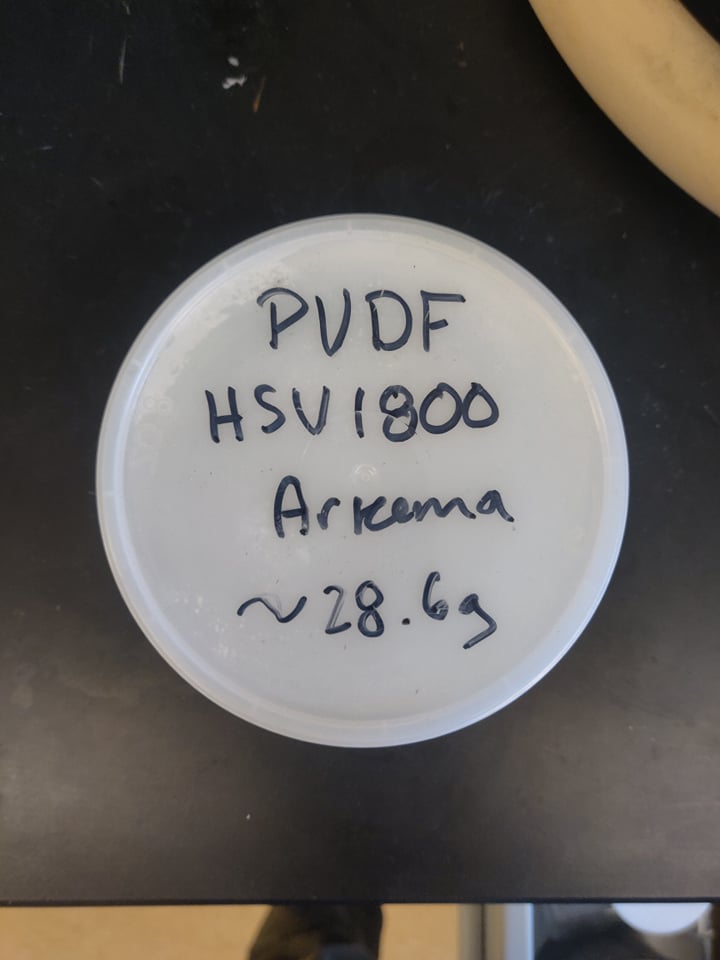 PVDF
HSV1800
Arkema
~28.6g